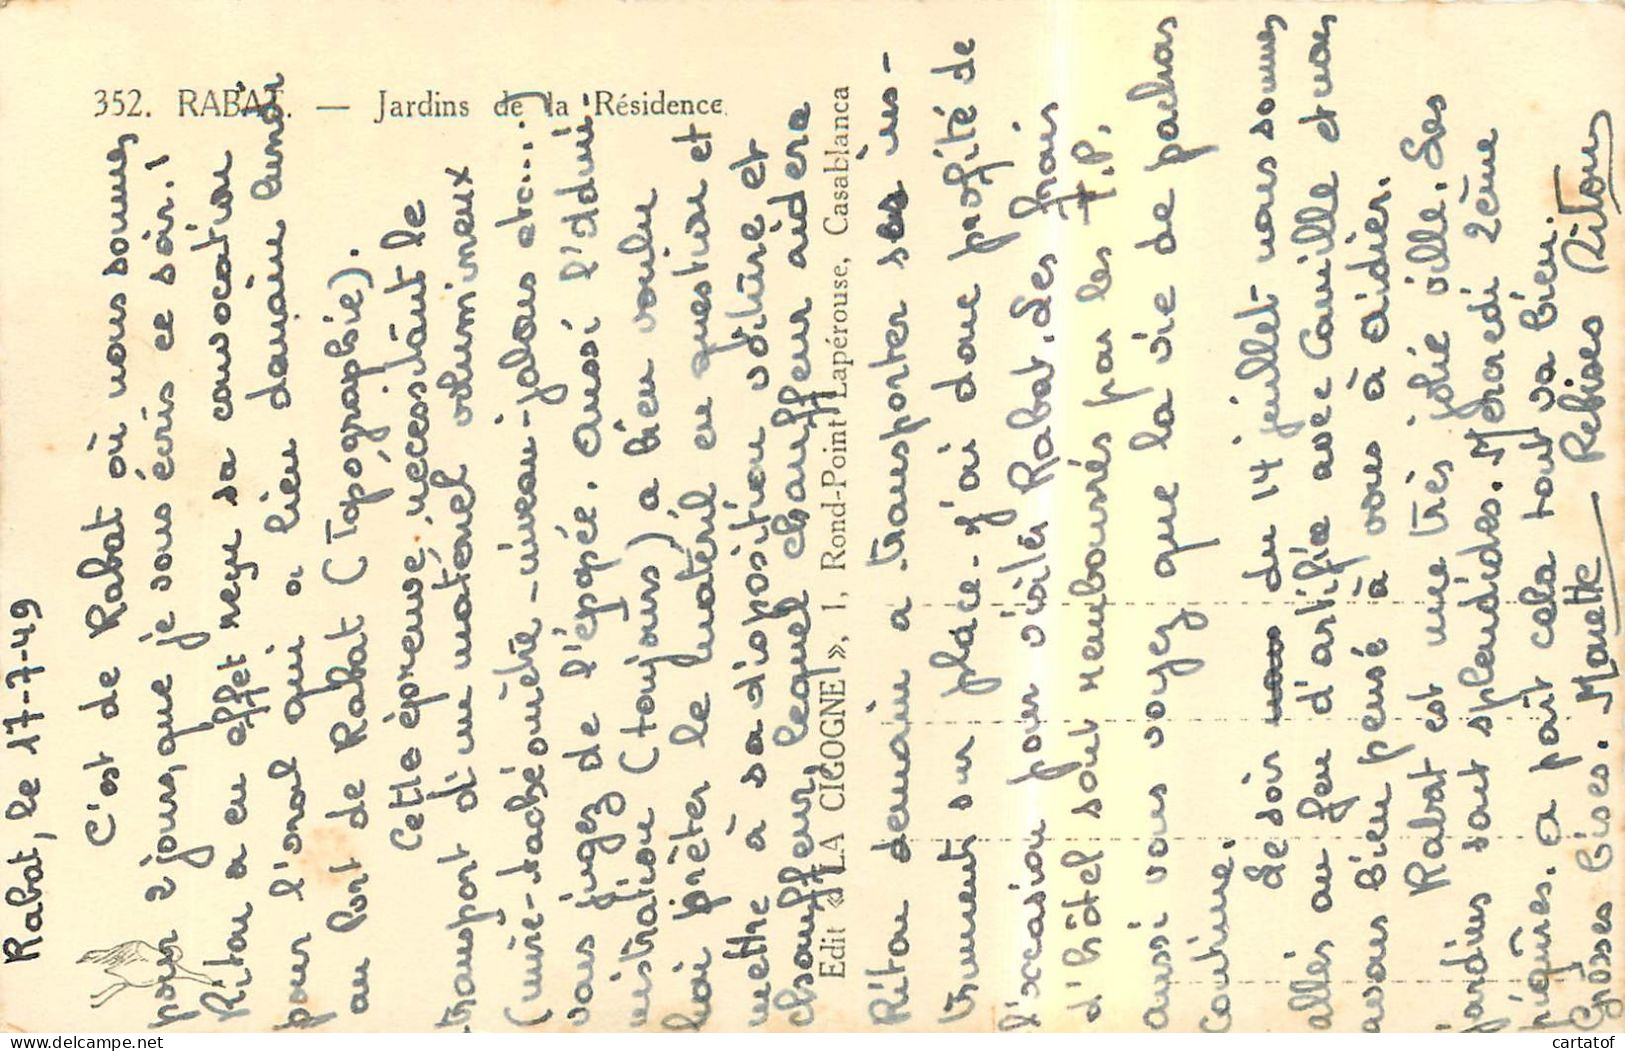 352. RABAT. — Jardins de la Résidence
Edit « LA CIGOGNE », 1, Rond-Point Lapérouse, Casablanca
Rabat, le 17-7-49
C'est de Rabat où nous sommes
pour 2 jours, que je vous écris ce soir. !
Riton a en effet reçu sa convocation
pour l'oral qui a lieu demain lundi
au Port de Rabat (Topographie).
Cette épreuve, nécessitant le
transport d'un matériel volumineux
(mire-tachéomètre-niveau-jalons etc...)
vous jugez de l'épopée. Aussi l'admi-
nistration (toujours) a bien voulu
lui prêter le matéril en question et
mettre à sa disposition voiture et
chauffeur, lequel chauffeur aidera
Riton demain a transporter ses ins-
truments sur place. J'ai donc profité de
l'occasion pour visiter Rabat. Les frais
d'hôtel sont remboursés par les T.P.
Aussi vous voyez que la vie de pachas
continue.
Le soir du 14 juillet nous sommes
allés au feu d'artifice avec Camille et nous
avons bien pensé à vous à Aidier.
Rabat est une très jolie ville. Les
jardins sont splendides. Mercredi 2ème
piqûres. A part cela tout va bien.
Grosses bises. Manette Rebises Riton
cartatof